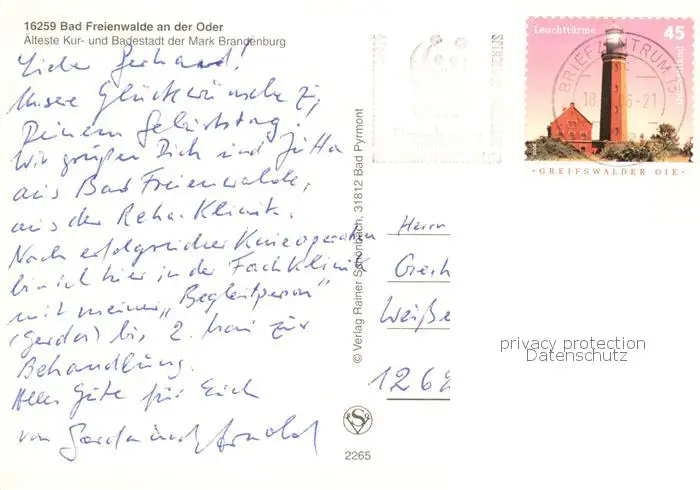 16259 Bad Freienwalde an der Oder
Älteste Kur- und Badestadt der Mark Brandenburg
Lieber Gerhard!
Unsere Glückwünsche z.
Deinem Geburtstag!
Wir grüßen Dich und Jutta
aus Bad Freienwalde,
aus der Reha-Klinik.
Nach erfolgreicher Knieoperation
bin ich hier in der Fachklinik
mit meiner „Begleitperson"
(Gerda) bis 2. Mai zur
Behandlung.
Alles Gute für Euch
von Gerda und Arnold
© Verlag Rainer Schönbach, 31812 Bad Pyrmont
2265
Leuchttürme 45
Deutschland
BRIEFZENTRUM 15
-GREIFSWALDER OIE-
Herrn
Gerh
Weiße
1268
privacy protection
Datenschutz